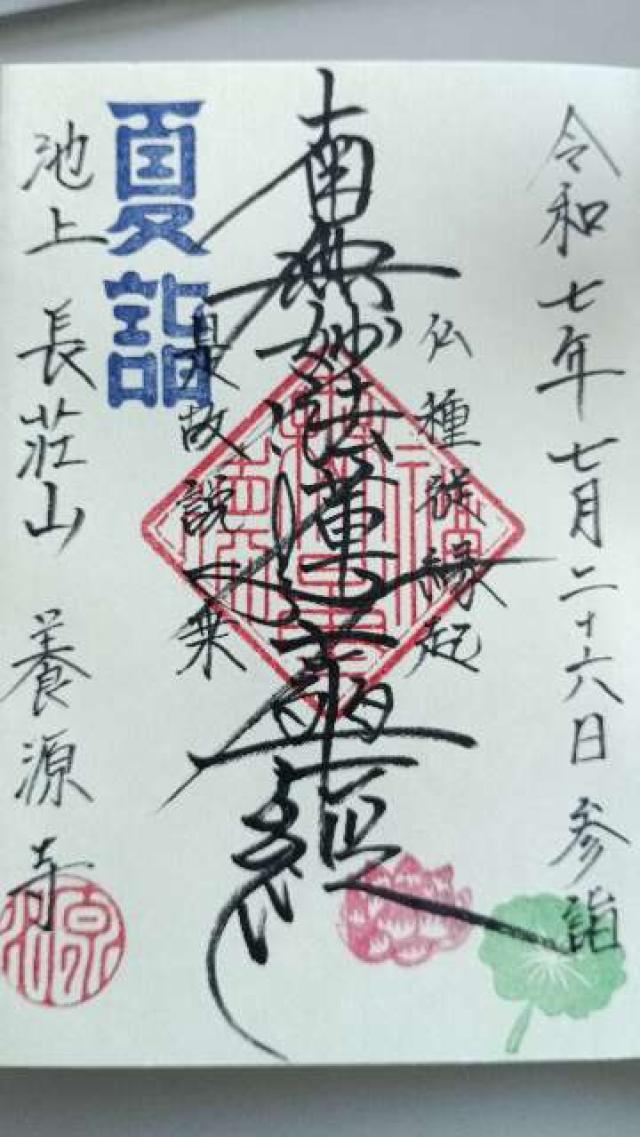 令和七年七月二十六日 参詣
仏種従縁起
南無妙法蓮華経
是故説一乗
夏詣
池上 長荘山 養源寺